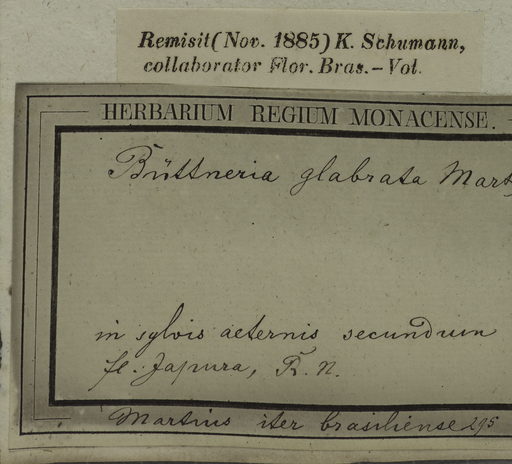 Remisit (Nov. 1885) K. Schumann,
collaborator Flor. Bras. – Vot.
HERBARIUM REGIUM MONACENSE.
Büttneria glabrata Mart
in sylvis aeternis secundum
fl. Japura, R. N.
Martius iter brasiliense 295